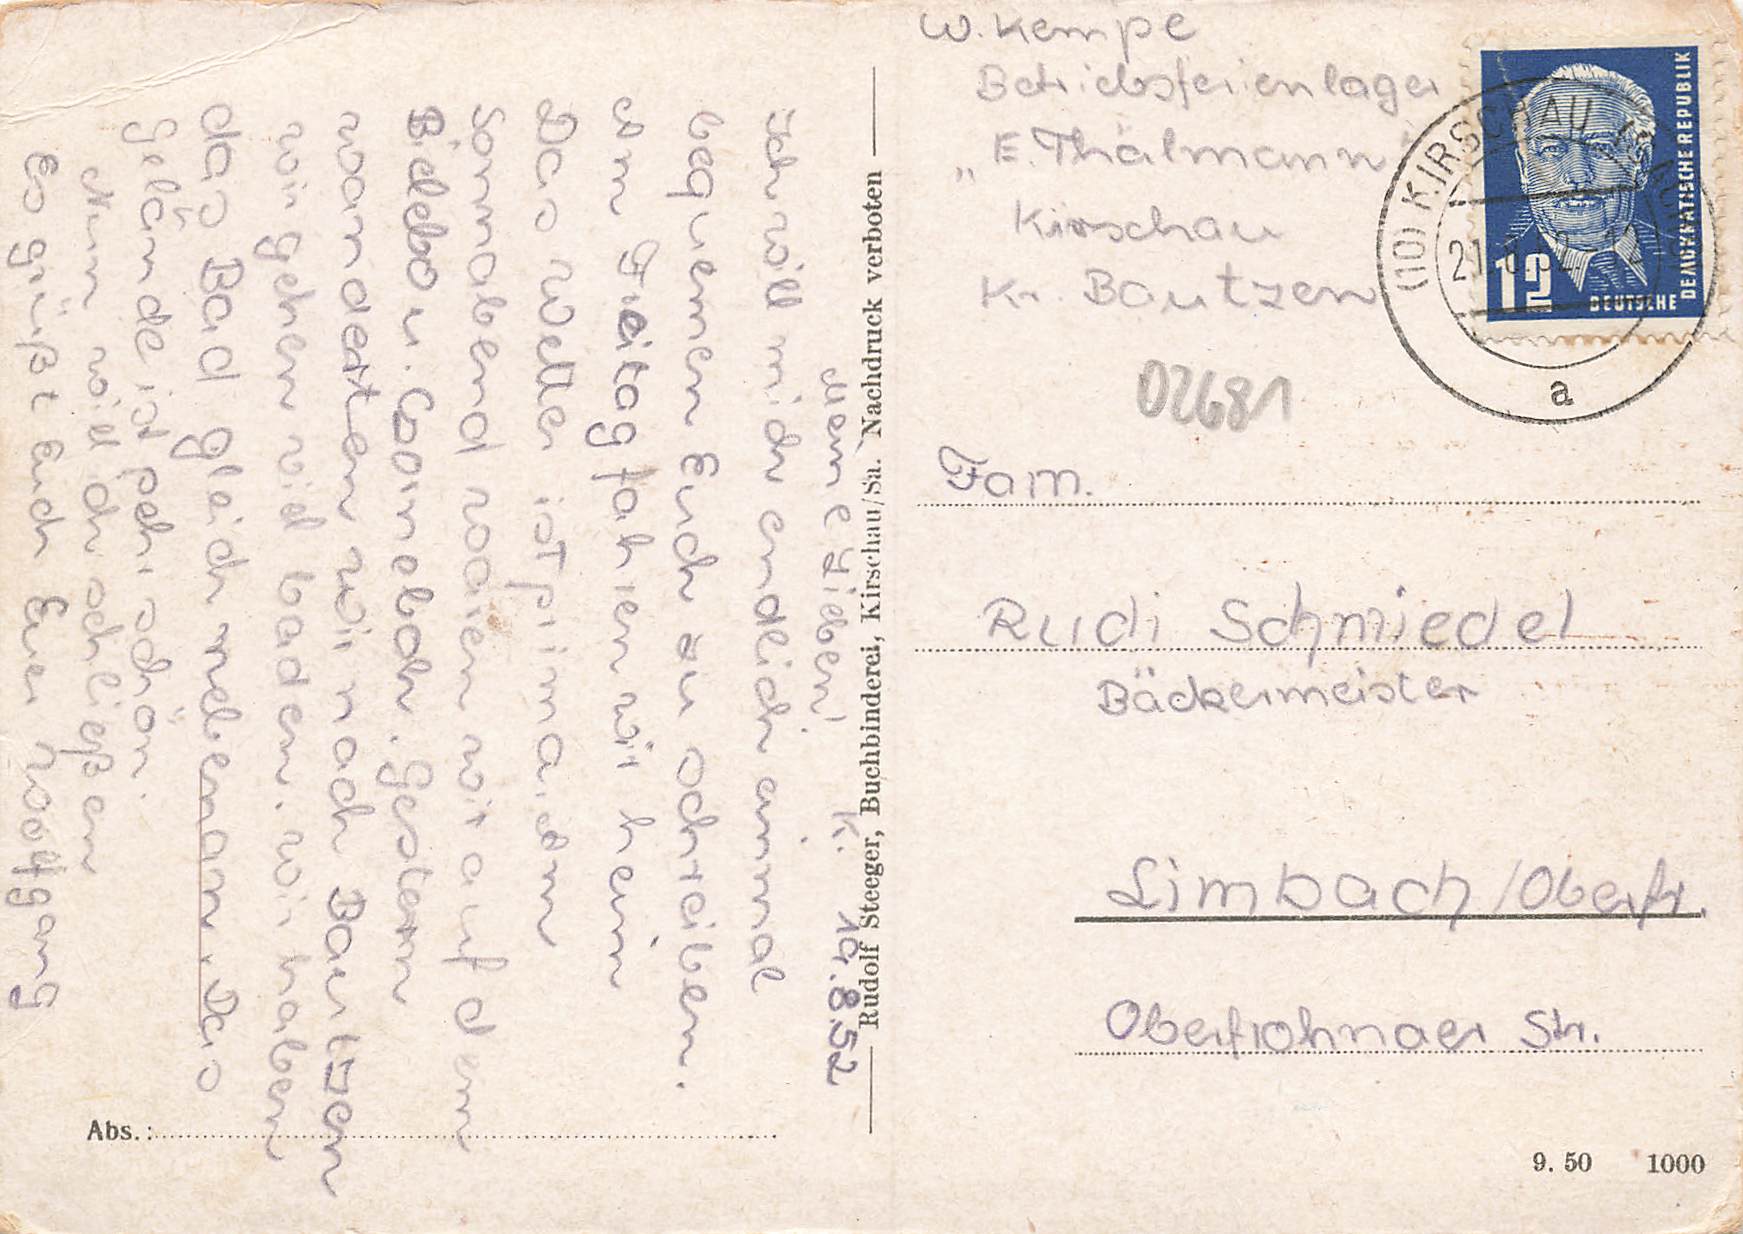 W. Kempe
Betriebsferienlager
„E. Thälmann
Kirschau
Kr. Bautzen
02681
Fam.
Rudi Schmiedel
Bäckermeister
Limbach/Oberfr.
Oberfrohnaer Str.
9. 50 1000
DEUTSCHE DEMOKRATISCHE REPUBLIK
12
(10) KIRSCHAU
a
Rudolf Steeger, Buchbinderei, Kirschau/Sa. Nachdruck verboten
Abs.:
K. 19.8.52
Meine Lieben!
Ich will mich endlich einmal
bequemen Euch zu schreiben.
Am Freitag fahren wir heim
Das Wetter ist prima. Am
Sonnabend waren wir auf dem
Bieleboh u. Czorneboh. Gestern
wanderten wir nach Bautzen
wir gehen viel baden. Wir haben
das Bad gleich nebenan. Das
Gelände ist sehr schön.
Nun will ich schließen
Es grüßt Euch Euer Wolfgang